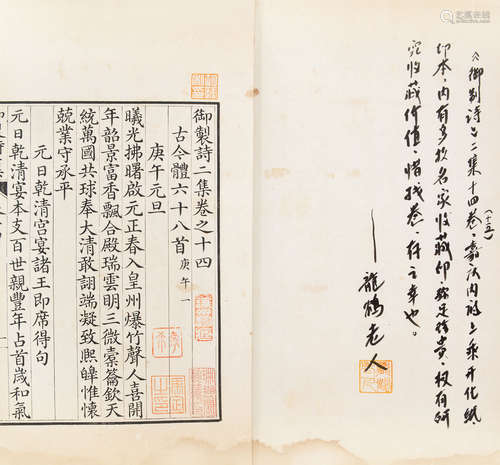 《御制诗》二集十四卷·（十五）嘉庆内府上乘开化纸
印本，内有多枚名家收藏印，弥足珍贵，极有研
究收藏价值，惜残卷，存之幸也。
——龍鹤老人
御製詩二集卷之十四
古今體六十八首 庚午一
庚午元旦
曦光拂曙啟元正春入皇州爆竹聲人喜開
年韶景富香飄合殿瑞雲明三微橐籥欽天
統萬國共球奉大清敢詡端凝致熙皡惟懷
兢業守承平
元日乾清宮宴諸王即席得句
元日乾清宴本支百世親豐年占首歲和氣